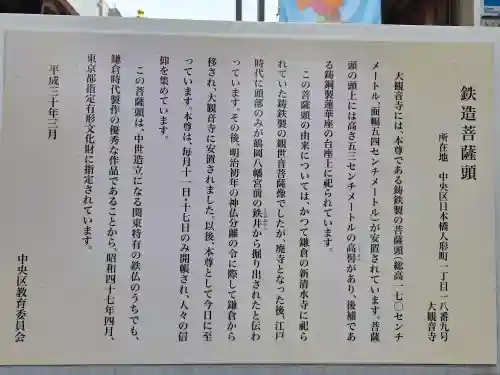 鉄造菩薩頭
所在地 中央区日本橋人形町一丁目一八番九号
大観音寺
大観音寺には、本尊である鋳鉄製の菩薩頭（総高一七〇センチ
メートル、面幅五四センチメートル）が安置されています。菩薩
頭の頭上には高さ五三センチメートルの高髻があり、後補であ
る鋳銅製蓮華座の台座上に祀られています。
この菩薩頭の由来については、かつて鎌倉の新清水寺に祀ら
れていた鋳鉄製の観世音菩薩像でしたが、廃寺となった後、江戸
時代に頭部のみが鶴岡八幡宮前の鉄井から掘り出されたと伝わ
っています。その後、明治初年の神仏分離の令に際して鎌倉から
移され、大観音寺に安置されました。以後、本尊として今日に至
っています。本尊は、毎月十一日・十七日のみ開帳され、人々の信
仰を集めています。
この菩薩頭は、中世造立になる関東特有の鉄仏のうちでも、
鎌倉時代製作の優秀な作品であることから、昭和四十七年四月、
東京都指定有形文化財に指定されています。
平成三十年三月
中央区教育委員会